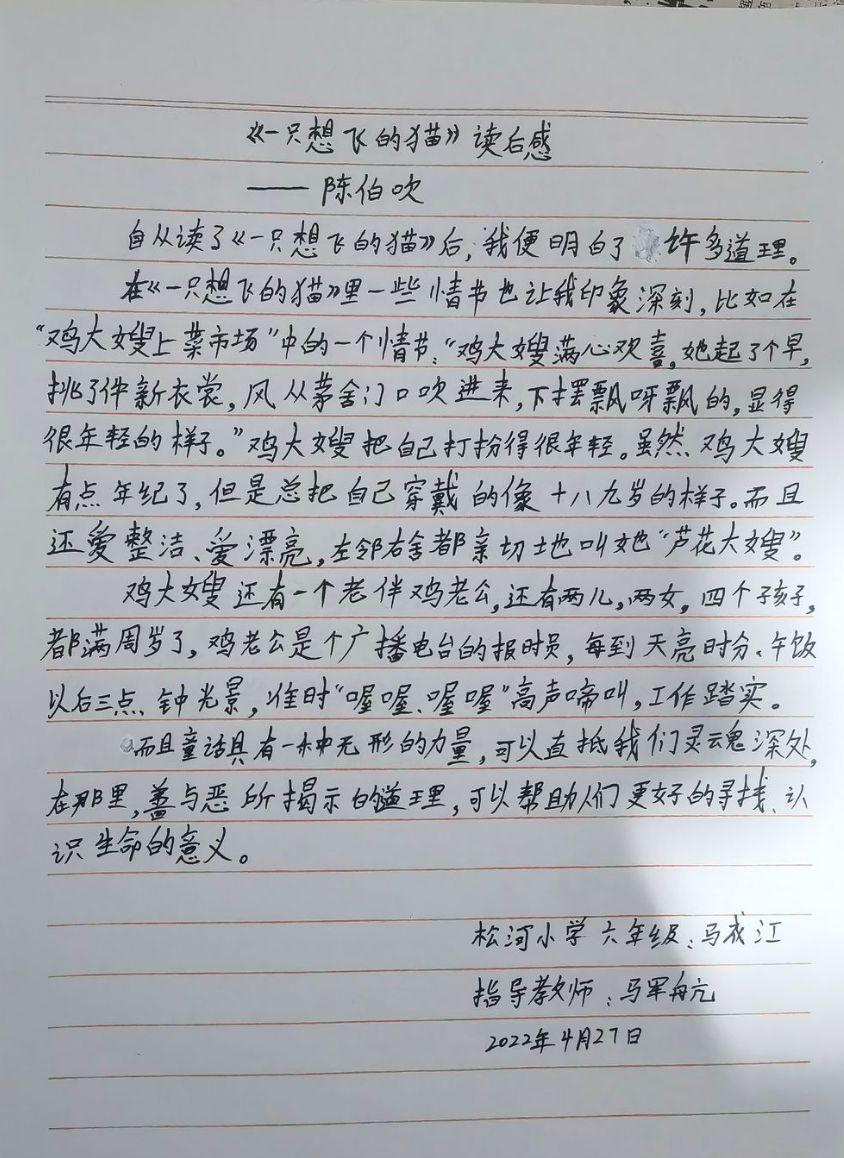 《一只想飞的猫》读后感
—— 陈伯吹
自从读了《一只想飞的猫》后，我便明白了许多道理。
在《一只想飞的猫》里一些情节也让我印象深刻，比如在
“鸡大嫂上菜市场”中的一个情节：“鸡大嫂满心欢喜，她起了个早，
挑了件新衣裳，风从茅舍门口吹进来，下摆飘呀飘的，显得
很年轻的样子。”鸡大嫂把自己打扮得很年轻。虽然鸡大嫂
有点年纪了，但是总把自己穿戴的像十八九岁的样子。而且
还爱整洁、爱漂亮，左邻右舍都亲切地叫她“芦花大嫂”。
鸡大嫂还有一个老伴鸡老公，还有两儿，两女，四个孩子，
都满周岁了，鸡老公是个广播电台的报时员，每到天亮时分、午饭
以后三点钟光景，准时“喔喔、喔喔”高声啼叫，工作踏实。
而且童话具有一种无形的力量，可以直抵我们灵魂深处，
在那里，善与恶所揭示的道理，可以帮助人们更好的寻找、认
识生命的意义。
松河小学六年级：马成江
指导教师：马军
2022年4月27日